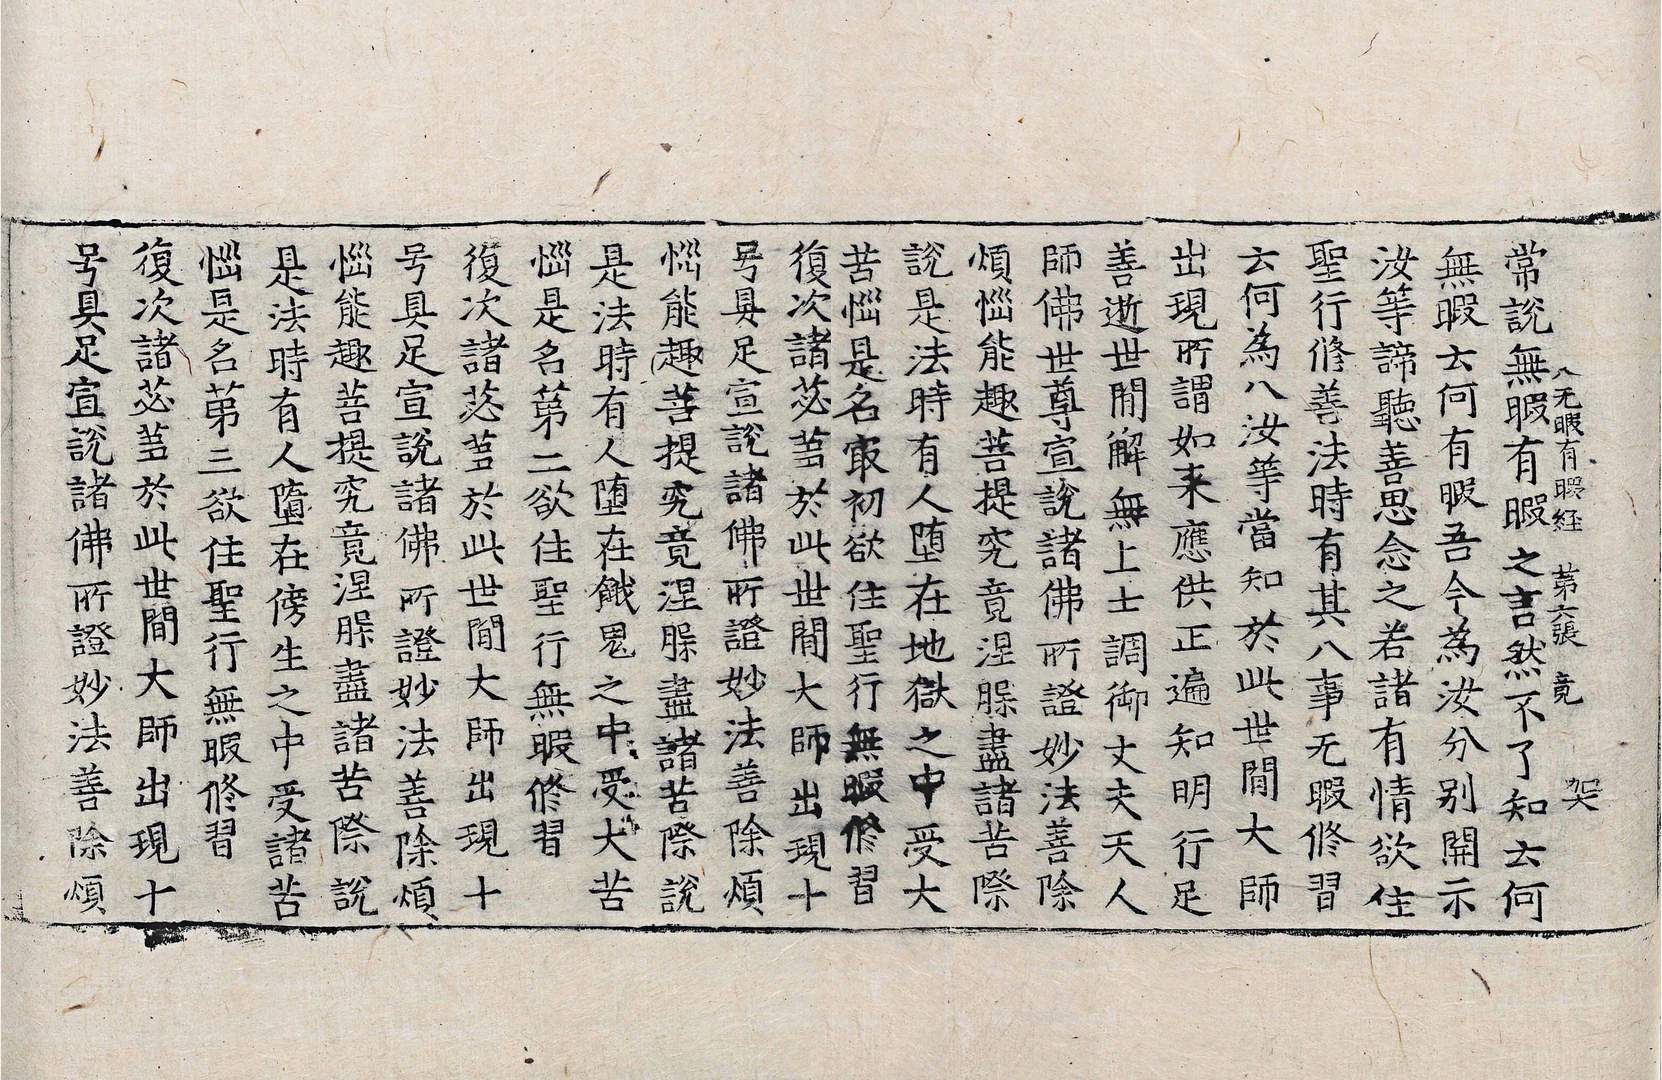 八无暇有暇経 第六張 竟 架
常說無暇有暇之言然不了知云何
無暇云何有暇吾今為汝分别開示
汝等諦聽善思念之若諸有情欲住
聖行修善法時有其八事无暇修習
云何為八汝等當知於此世間大師
出現所謂如来應供正遍知明行足
善逝世間解無上士調御丈夫天人
師佛世尊宣說諸佛所證妙法善除
煩惱能趣菩提究竟涅槃盡諸苦際
說是法時有人堕在地獄之中受大
苦惱是名㝡初欲住聖行無暇修習
復次諸苾蒭於此世間大師出現十
号具足宣說諸佛所證妙法善除煩
惱能趣菩提究竟涅槃盡諸苦際說
是法時有人堕在餓鬼之中受大苦
惱是名苐二欲住聖行無暇修習
復次諸苾蒭於此世間大師出現十
号具足宣說諸佛所證妙法善除煩
惱能趣菩提究竟涅槃盡諸苦際說
是法時有人墮在傍生之中受諸苦
惱是名苐三欲住聖行無暇修習
復次諸苾蒭於此世間大師出現十
号具足宣說諸佛所證妙法善除煩